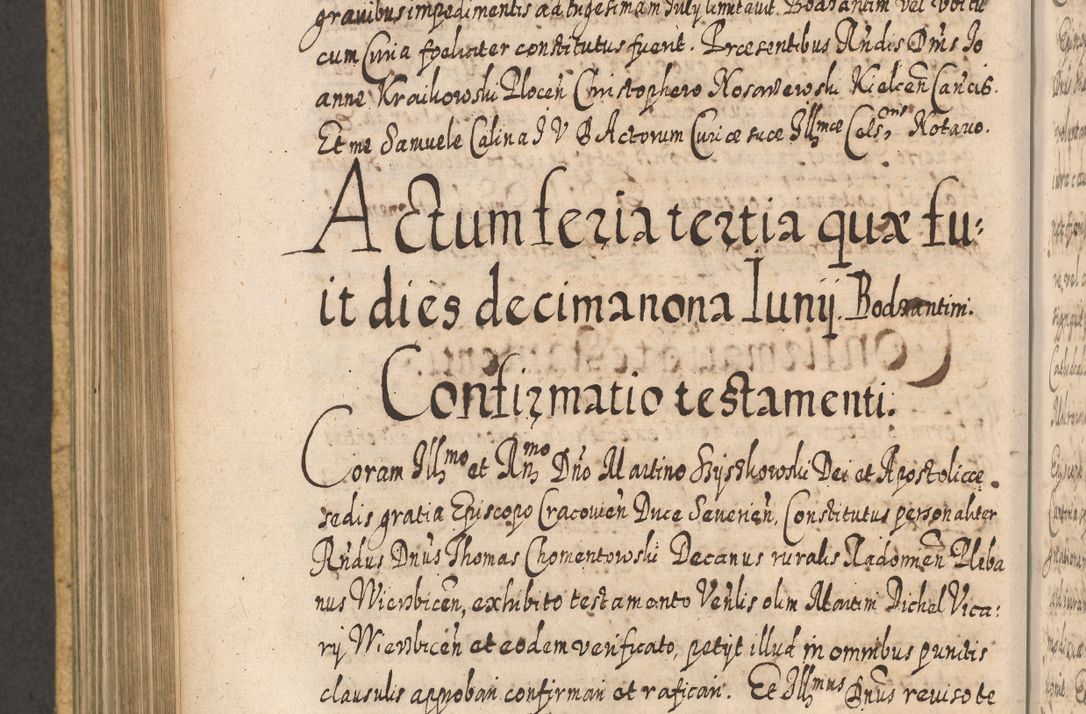 gravibus impedimentis ad trigesimam July limitavit. Bodzantini vel ubi tu
cum Curia fæliciter constitutus fuerit. Præsentibus Rndis Dnis Jo
anne Kraikowski Plocen Christophero Kielcen Cancis.
Et me Samuele Calina J V D Actorum Curiæ suæ Illmæ Cels. Notario.
Actum feria tertia quæ fu:
it dies decimanona Iunij. Bodzantini.
Confirmatio testamenti.
Coram Illmo et Rndmo Dño Martino Szyszkowski Dei et Apostolicæ
sedis gratia Episcopo Cracovien Duce Severien, Constitutus personaliter
Rñdus Dnus Thomas Chomentowski Decanus ruralis Radomien Pleba
nus Wierzbicen, exhibito testamento Venlis olim Martini Dichel Vica:
rij Wierzbicen et eodem verificato, petijt illud in omnibus punctis
clausulis approbari confirmari et ratificari. Et Illmus Dnus reviso te